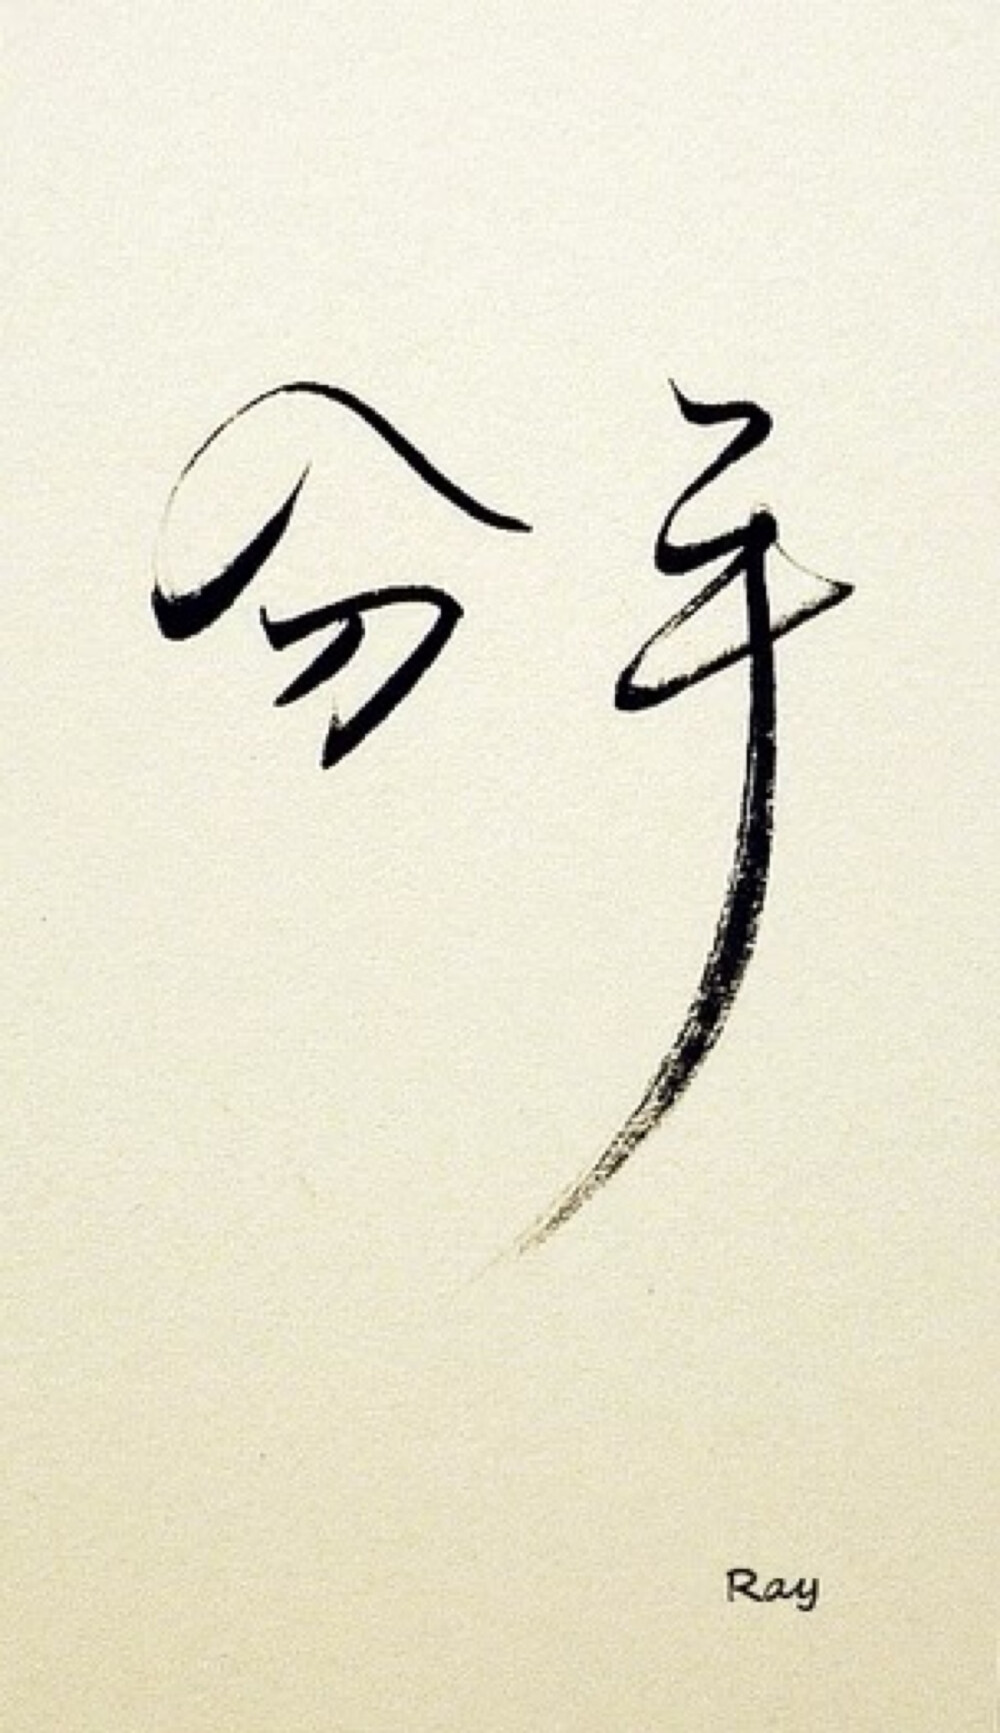 分手
Ray